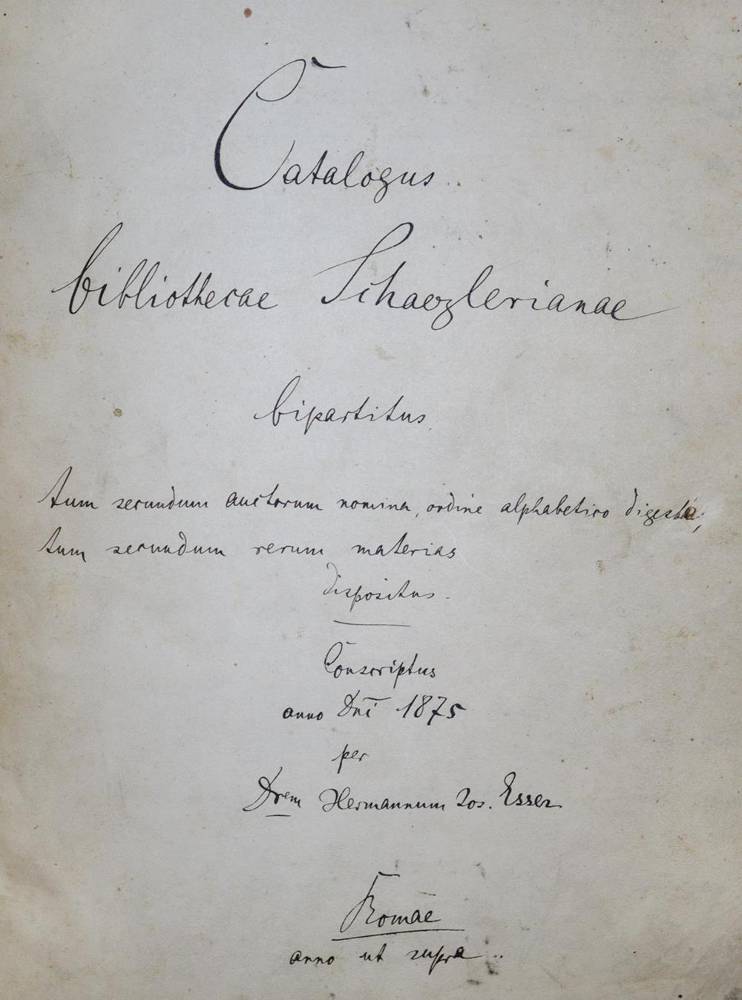 Catalogus
bibliothecae Schaezlerianae
bipartitus
tum secundum auctorum nomina, ordine alphabetico digesta,
tum secundum rerum materias
dispositus.
Conscriptus
anno Dni 1875
per
Drem Hermannum Jos. Esser
Romae
anno ut supra..